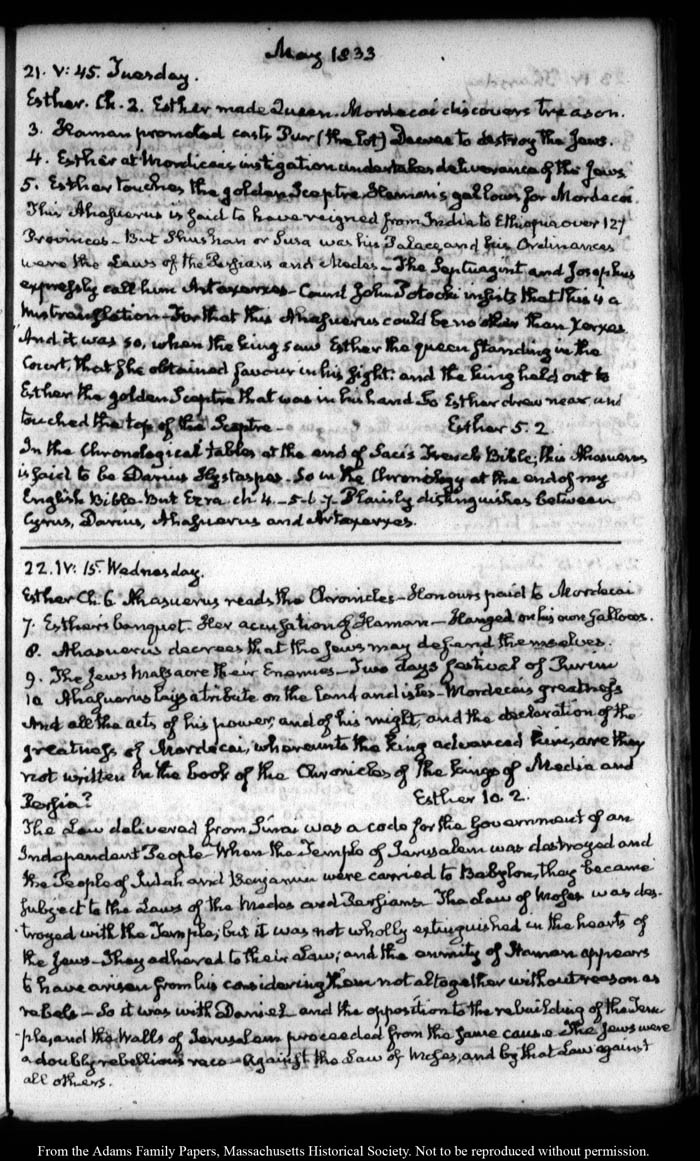 May 1833
21. V: 45. Tuesday.
Esther. Ch. 2. Esther made Queen. Mordecai discovers treason.
3. Haman promoted casts Pur (the lot) Decree to destroy the Jews.
4. Esther at Mordicai's instigation undertakes deliverance of the Jews
5. Esther touches the golden Sceptre. Haman's gallows for Mordecai.
This Ahasuerus is said to have reigned from India to Ethiopia over 127
Provinces - But Shushan or Susa was his Palace, and his Ordinances
were the Laws of the Persians and Medes - The Septuagint and Josephus
expressly call him Artaxerxes - Count John Potocki insists that this is a
mistranslation - For that this Ahasuerus could be no other than Xerxes
"And it was so, when the king saw Esther the queen standing in the
Court, that she obtained favour in his sight: and the king held out to
Esther the golden Sceptre that was in his hand So Esther drew near, and
touched the top of the Sceptre - Esther 5. 2.
In the Chronological tables at the end of Saci's French Bible, this Ahasuerus
is said to be Darius Hystaspes. So in the Chronology at the end of my
English Bible. But Ezra. ch. 4. - 5-6 7. Plainly distinguishes between
Cyrus, Darius, Ahasuerus and Artaxerxes.
22. IV: 15. Wednesday.
Esther Ch. 6. Ahasuerus reads the Chronicles - Honours paid to Mordecai
7. Esther's banquet. Her accusation of Haman - Hanged on his own Gallows.
8. Ahasuerus decrees that the Jews may defend themselves.
9. The Jews massacre their Enemies - Two days festival of Purim
10 Ahasuerus lays a tribute on the land and isles - Mordecai's greatness
And all the acts of his power, and of his might, and the declaration of the
greatness of Mordecai, whereunto the king advanced him, are they
not written in the book of the Chronicles of the kings of Media and
Persia? Esther 10. 2.
The Law delivered from Sinai was a code for the Government of an
Independent People - When the Temple of Jerusalem was destroyed and
the People of Judah and Benjamin were carried to Babylon, they became
subject to the Laws of the Medes and Persians - The Law of Moses was des-
troyed with the Temple; but it was not wholly extinguished in the hearts of
the Jews - They adhered to their Law; and the enmity of Haman appears
to have arisen from his considering them not altogether without reason as
rebels - So it was with Daniel and the opposition to the rebuilding of the Tem-
-ple, and the Walls of Jerusalem proceeded from the same cause - The Jews were
a doubly rebellious race - Against the Law of Moses, and by that Law against
all others.
From the Adams Family Papers, Massachusetts Historical Society. Not to be reproduced without permission.